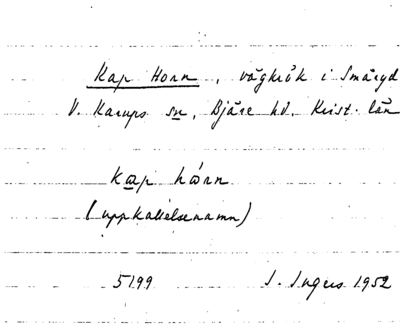 Kap Horn, vägkrök i Småryd
V. Karups sn, Bjäre hd. Krist. län
kap hårn
(uppkallelsenamn)
5199 I. Ingers 1952